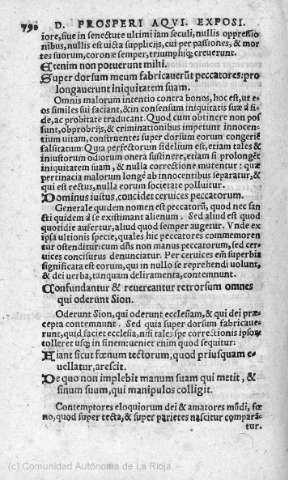 790 D. PROSPERI AQVI. EXPOSI.
iore, siue in senectute ultimi iam seculi, nullis oppressio
nibus, nullis est uicta supplicijs, cui per passiones, & mor
tes suorum, coronæ semper, triumphiq; creuerunt.
Etenim non potuerunt mihi.
Super dorsum meum fabricauerūt peccatores: pro
longauerunt iniquitatem suam.
Omnis malorum intentio contra bonos, hoc est, ut e-
os similes sui faciant, & in consensum iniquitatis suæ à fi-
de, ac probitate traducant. Quod cum obtinere non pos
sunt, obprobrijs, & criminationibus impetunt innocen-
tium uitam, construentes super dorsum eorum congeriē
falsitatum. Qua perfectorum fidelium est, etiam tales &
iniustorum odiorum onera sustinere, etiam si prolongēt
iniquitatem suam, & nulla correctione mutentur: quæ
pertinacia malorum longè ab innocentibus separatur, &
qui est rectus, nulla eorum societate polluitur.
Dominus iustus, concidet ceruices peccatorum.
Generale quidem nomen est peccatorū, quod nec san
cti quidem à se existimant alienum. Sed aliud est quod
quotidie aufertur, aliud quod semper augetur. Vnde ex
ipsa ultionis specie, quales hic peccatores commemoren
tur ostenditur: cùm dñs non manus peccatorum, sed cer-
uices concisurus denunciatur. Per ceruices em̄ superbia
significata est eorum, qui in nullo se reprehendi uolunt,
& dei uerba, tinquam deliramenta, contemnunt.
Confundantur & reuereantur retrorsum omnes
qui oderunt Sion.
Oderunt Sion, qui oderunt ecclesiam, & qui dei præ-
cepta contemnunt. Sed quia super dorsum fabricaue-
runt, quid faciet ecclesia, nisi tales spe correctionis ipsos
tolleret usq; in finem: uenier enim quod sequitur:
Fiant sicut fœnum tectorum, quod priusquam e-
uellatur, arescit.
De quo non implebit manum suam qui metit, &
sinum suum, qui manipulos colligit.
Contemptores eloquiorum dei & amatores mūdi, fœ
no, quod super tecta, & super parietes nascitur compara-
tur.
(c) Comunidad Autónoma de La Rioja